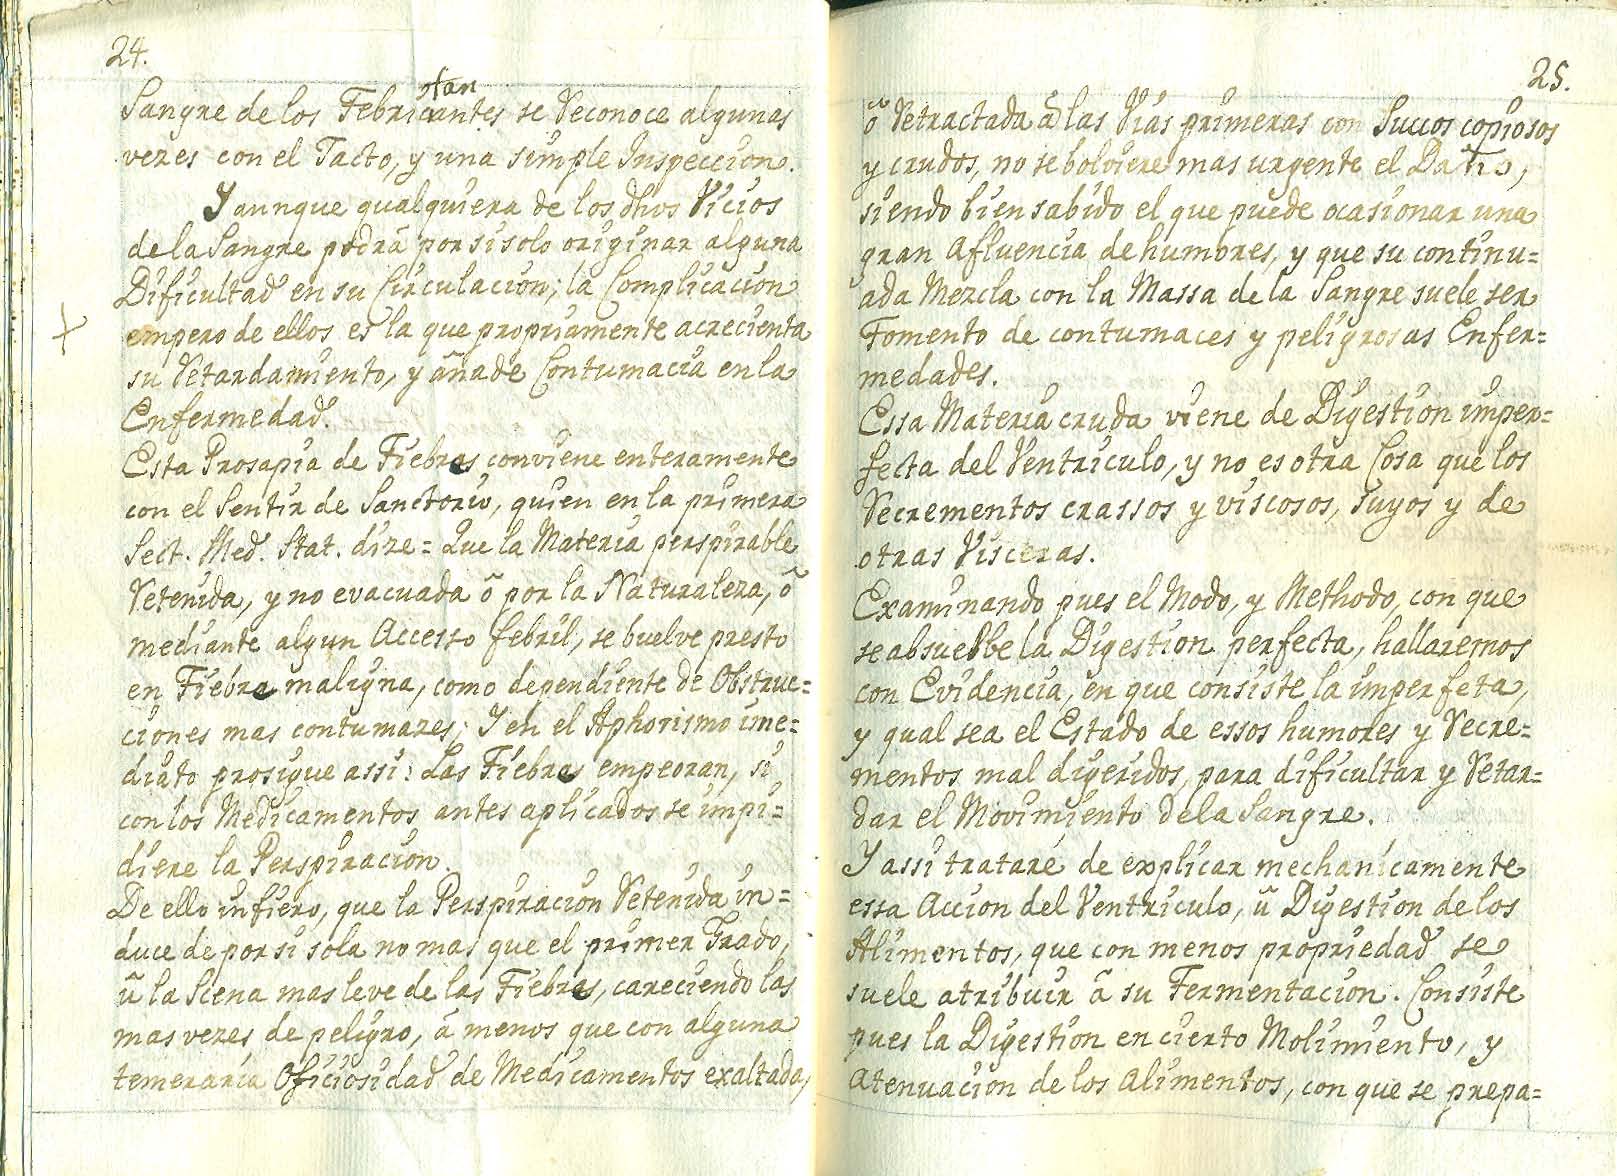 24.
Sangre de los Febricitantes se reconoce algunas
vezes con el Tacto, y una simple Inspeccion.
Y aunque qualquiera de los dhos Vicios
de la Sangre podrã por si solo originar alguna
Dificultad en su Circulacion; la Complicacion
empero de ellos es la que propriamente acrecienta
su retardamiento, y añade Contumacia en la
Enfermedad.
Esta Prosapia de Fiebres conviene enteramente
con el Sentir de Sanctorio, quien en la primera
Sect. Med. Stat. dize = Que la Materia perspirable
retenida, y no evacuada õ por la Naturaleza, õ
mediante algun Accesso febril, se buelve presto
en Fiebre maligna, como dependiente de Obstruc=
ciones mas contumazes; Y en el Aphorismo ime=
diato prosigue assi: Las Fiebres empeoran, si
con los Medicamentos antes aplicados se impi=
diere la Perspiracion.
De ello infiero, que la Perspiracion retenida in=
duce de por si sola no mas que el primer Grado,
ũ la Scena mas leve de las Fiebres, careciendo las
mas vezes de peligro, ã menos que con alguna
temeraria Oficiosidad de Medicamentos exaltada,
25.
õ retractada ã las Vias primeras con Succos copiosos
y crudos, no se bolviere mas urgente el Daño,
siendo bien sabido el que puede ocasionar una
gran Afluencia de humores, y que su continu=
ada Mezcla con la Massa de la Sangre suele ser
Fomento de contumaces y peligrosas Enfer=
medades.
Essa Materia cruda viene de Digestion imper=
fecta del Ventriculo, y no es otra Cosa que los
recrementos crassos y viscosos, suyos y de
otras Visceras.
Examinando pues el Modo, y Methodo, con que
se absuelbe la Digestion perfecta, hallaremos
con Evidencia, en que consiste la imperfeta,
y qual sea el Estado de essos humores y recre=
mentos mal digeridos, para dificultar y retar=
dar el Movimiento de la Sangre.
Y assi trataré de explicar mechanicamente
essa Accion del Ventriculo, ũ Digestion de los
Alimentos, que con menos propriedad se
suele atribuir ã su Fermentacion. Consiste
pues la Digestion en cierto Molimiento, y
Atenuacion de los Alimentos, con que se prepa=